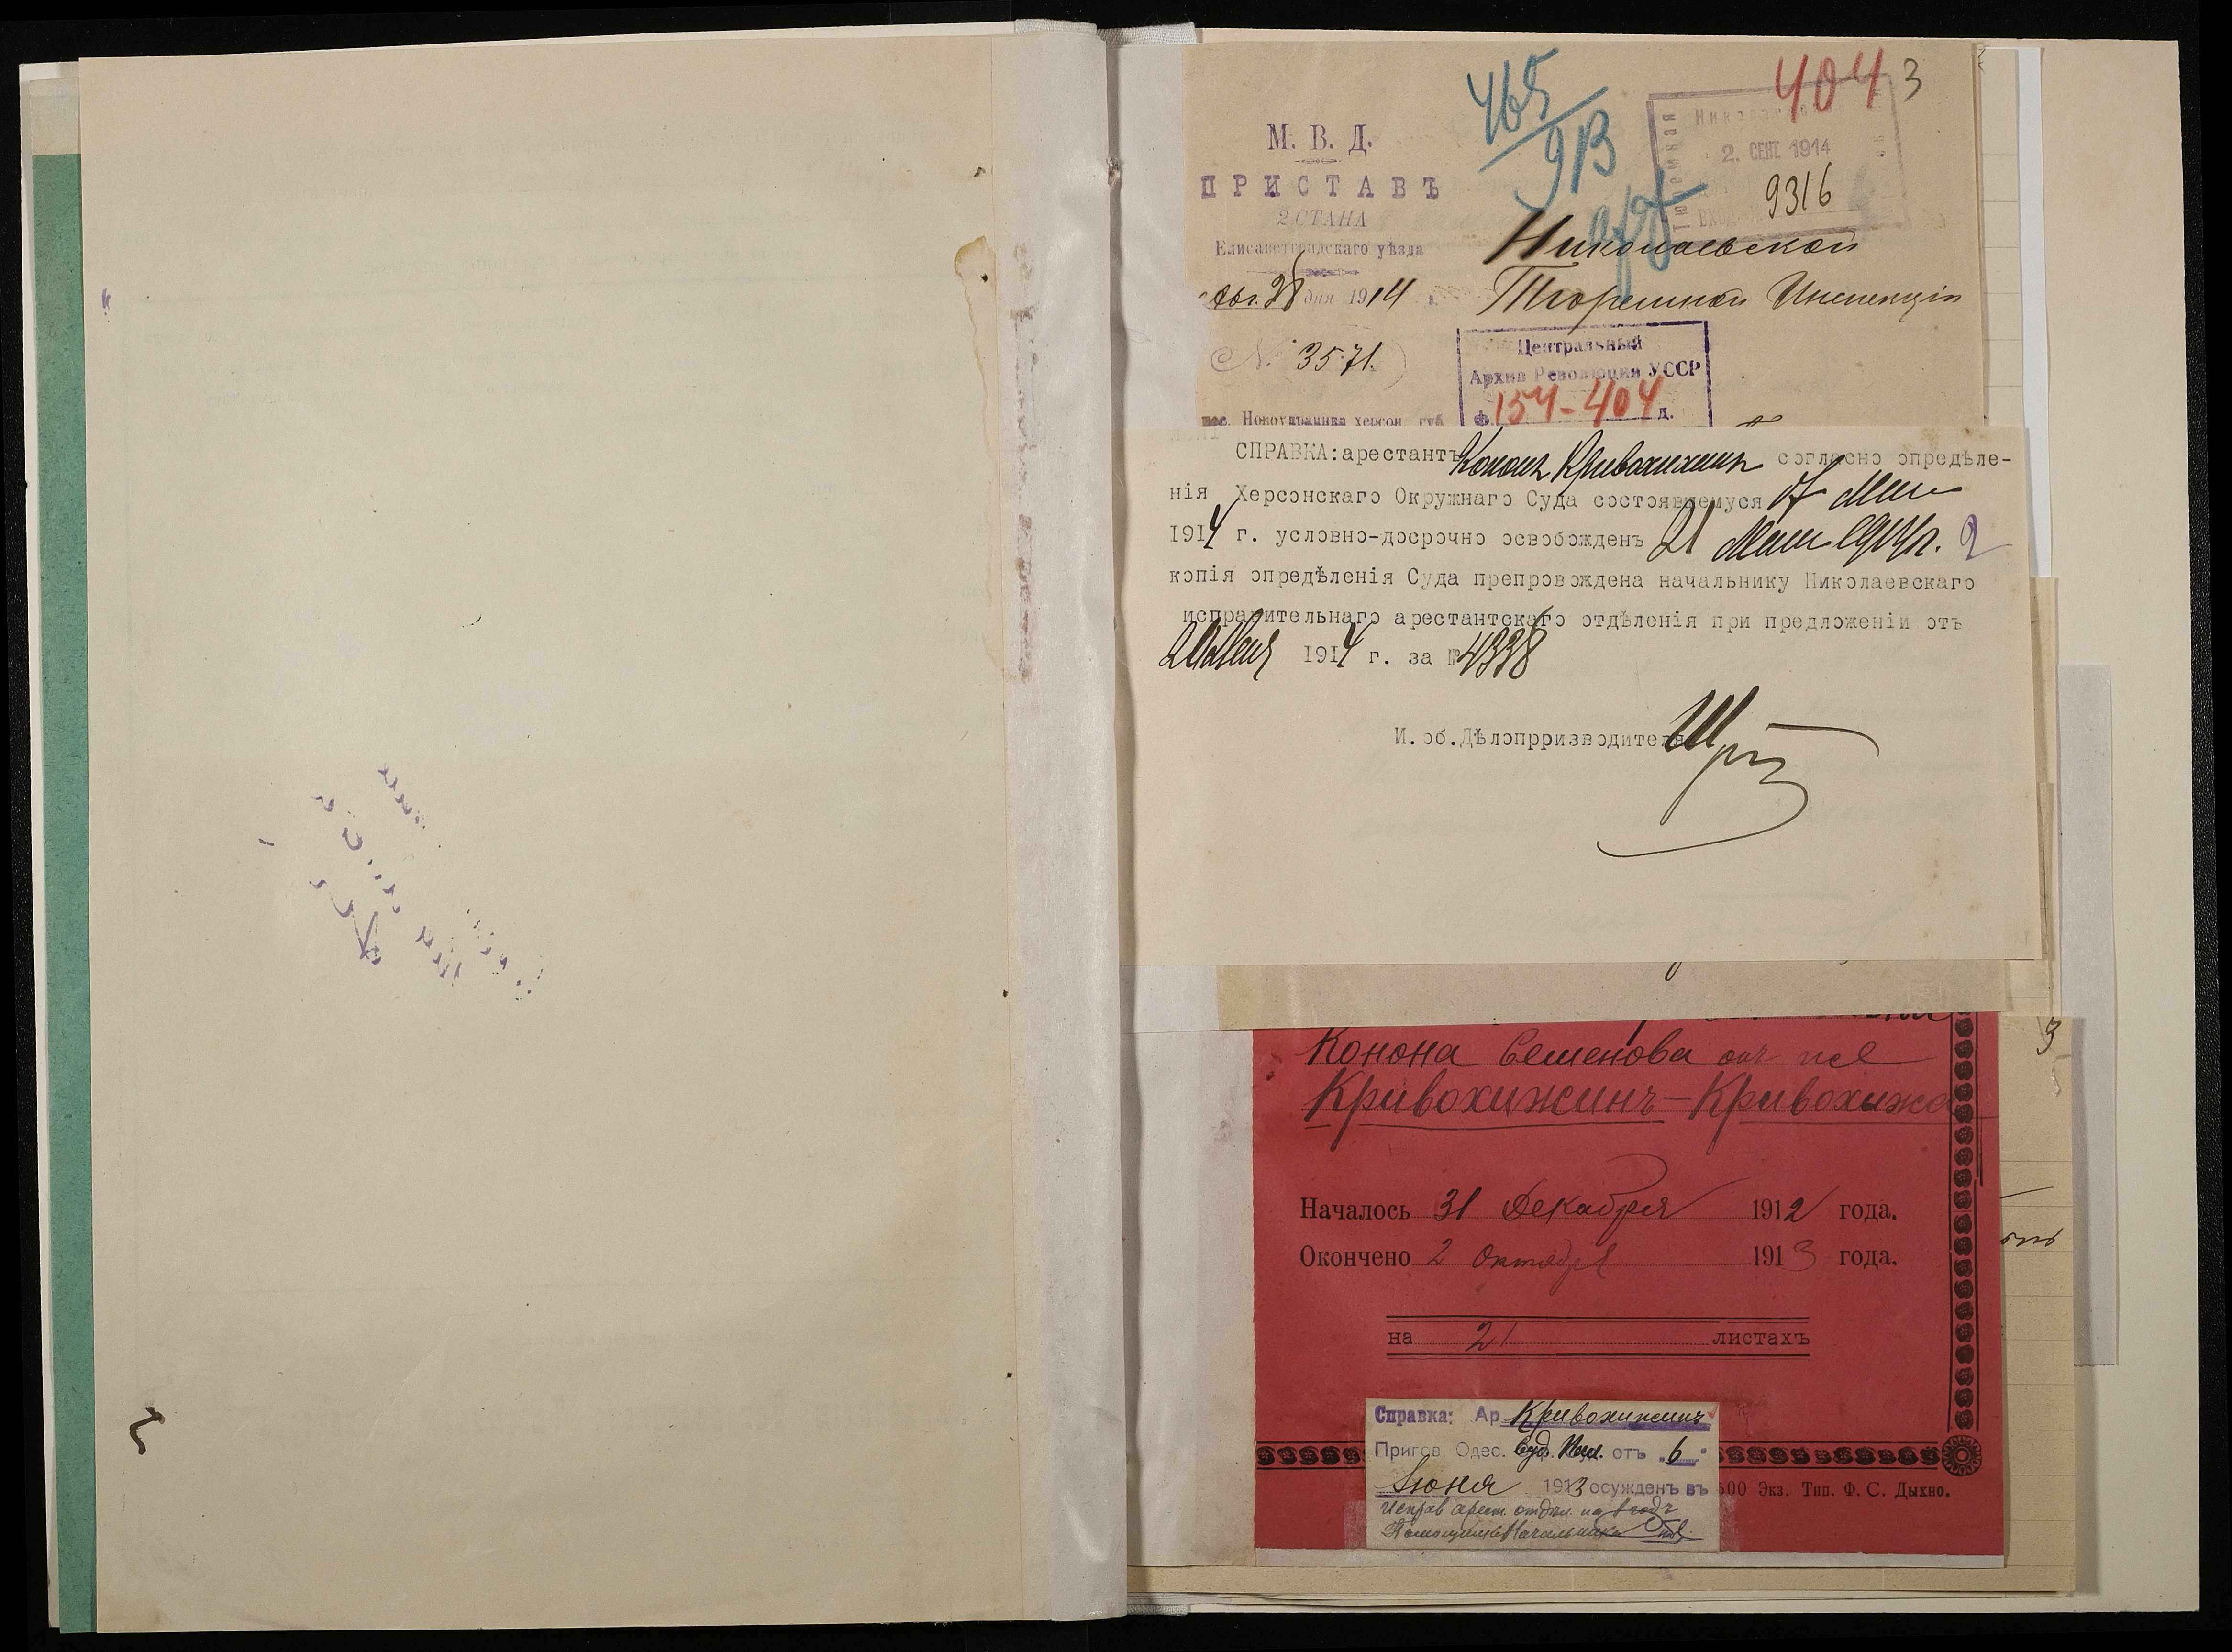 404 3
465
913
М. В. Д.
ПРИСТАВЪ
2 СТАНА
Елисаветградскаго уѣзда
Авг. 28 дня 1914 г.
№ 3571.
2. СЕНТ. 1914
9316
Николаевской
Тюремной Инспекціи
Центральный
Архив Революции УССР
ф. 154-404 д.
СПРАВКА: арестантъ Кононъ Кривохижинъ согласно опредѣле-
нія Херсонскаго Окружнаго Суда состоявшемуся 17 Мая
1914 г. условно-досрочно освобожденъ 21 Мая 1914 г. 2
копія опредѣленія Суда препровождена начальнику Николаевскаго
исправительнаго арестантскаго отдѣленія при предложеніи отъ
20 Мая 1914 г. за № 4338
И. об. Дѣлопрризводителя
Конона Семенова онъ же
Кривохижинъ-Кривохижа
Началось 31 Декабря 1912 года.
Окончено 2 Октября 1913 года.
на 21 листахъ
Справка: Ар. Кривохижинъ
Пригов. Одес. Суд. Пал. отъ 6
Іюня 1913 осужденъ въ
Исправ арест. отдѣл. на
Помощникъ Начальника
500 Экз. Тип. Ф. С. Дыхно.